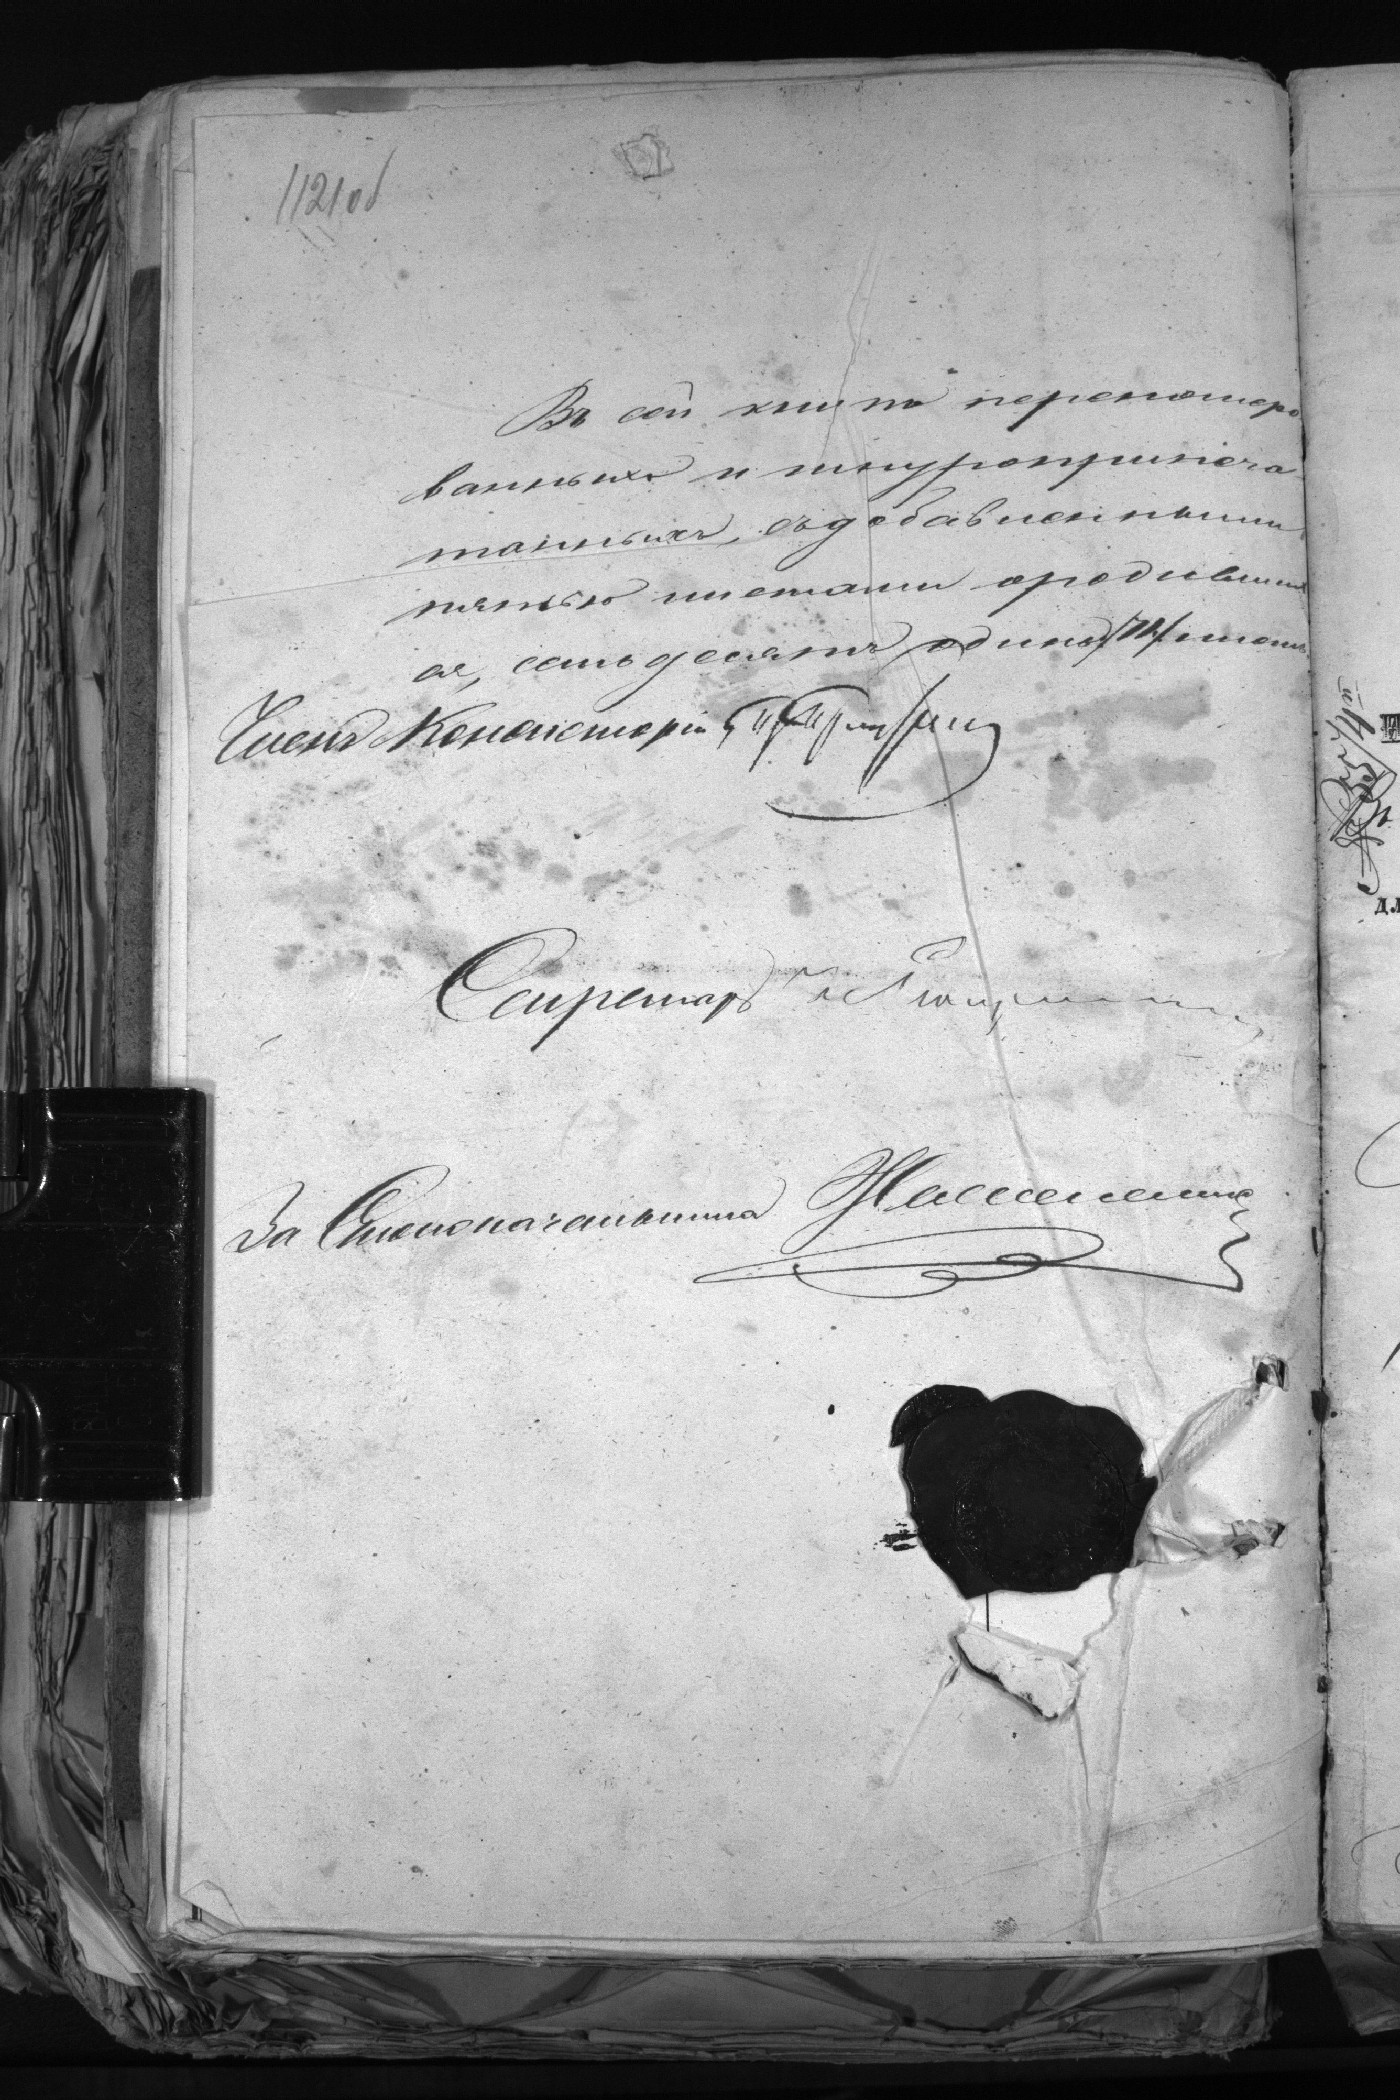 1121об
Въ сей книгѣ перенумеро
ванныхъ и шнуроприпеча
танныхъ, съ добавленными
пятью листами о родивших
ся, семьдесятъ одинъ /71/ листъ.
Членъ Консисторіи
Секретарь
За Столоначальника